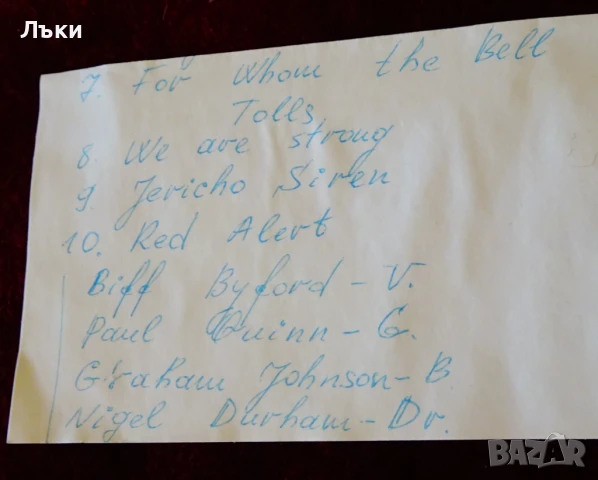 Лъки
7. For Whom the Bell
Tolls
8. We are strong
9. Jericho Siren
10. Red Alert
Biff Byford - V.
Paul Quinn - G.
Graham Johnson - B.
Nigel Durham - Dr.
BAZAR